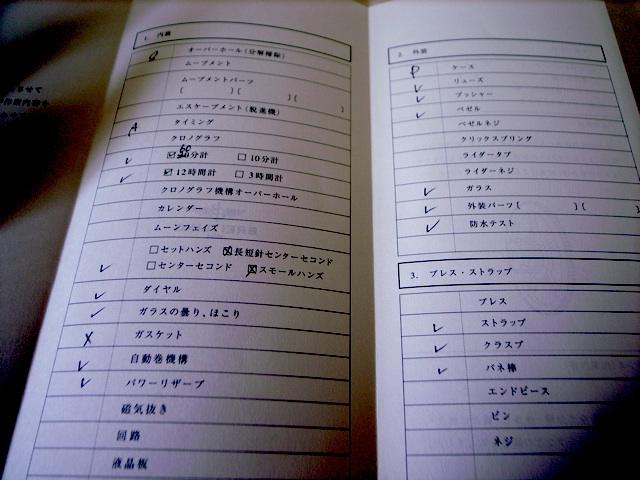 1. 内装
オーバーホール(分解掃除)
ムーブメント
ムーブメントパーツ
( )( )( )
エスケープメント(脱進機)
A タイミング
クロノグラフ
✓ ☑ 分計 □10分計
✓ ☑12時間計 □3時間計
クロノグラフ機構オーバーホール
カレンダー
ムーンフェイズ
□セットハンズ ☒長短針センターセコンド
✓ □センターセコンド ☒スモールハンズ
✓ ダイヤル
✓ ガラスの曇り、ほこり
X ガスケット
✓ 自動巻機構
✓ パワーリザーブ
磁気抜き
回路
液晶板
2. 外装
P ケース
✓ リューズ
✓ プッシャー
✓ ベゼル
ベゼルネジ
クリックスプリング
ライダータブ
ライダーネジ
✓ ガラス
✓ 外装パーツ[ ][ ]
✓ 防水テスト
3. ブレス・ストラップ
ブレス
✓ ストラップ
✓ クラスプ
✓ バネ棒
エンドピース
ピン
ネジ